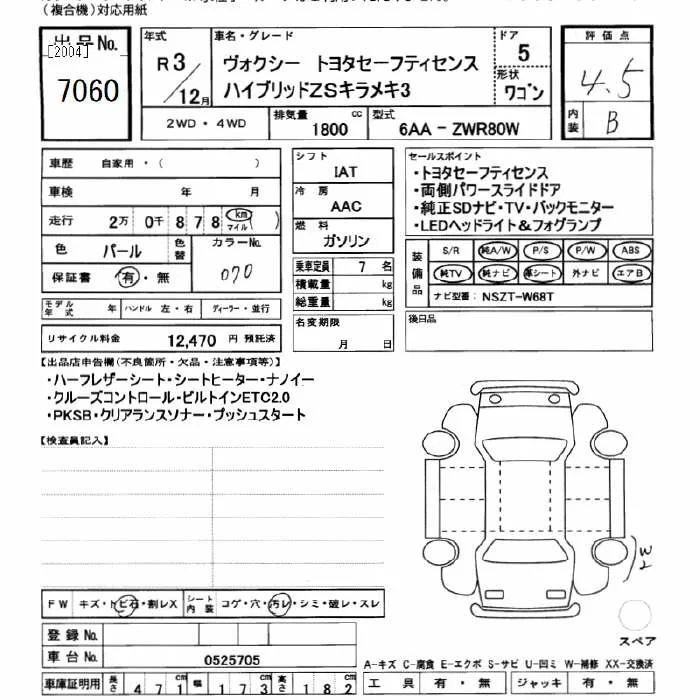 （複合機）対応用紙
出品No.
[2004]
7060
年式
R3/12月
車名・グレード
ヴォクシー トヨタセーフティセンス
ハイブリッドZSキラメキ3
ドア
5
形状
ワゴン
評価点
4.5
内装
B
2WD・4WD
排気量
1800 cc
型式
6AA - ZWR80W
車歴 自家用・（ ）
車検 年 月
走行 2万 0千 8 7 8 km マイル ( )
色 パール
色替
カラーNo.
070
保証書 有・無
モデル年式 年
ハンドル 左・右
ディーラー・並行
リサイクル料金 12,470 円 預託済
シフト
IAT
冷房
AAC
燃料
ガソリン
乗車定員 7 名
積載量 kg
総重量 kg
名変期限
月 日
セールスポイント
・トヨタセーフティセンス
・両側パワースライドドア
・純正SDナビ・TV・バックモニター
・LEDヘッドライト&フォグランプ
装備品
S/R 純A/W P/S P/W ABS
純TV 純ナビ 革シート 外ナビ エアB
ナビ型番： NSZT-W68T
後日品
【出品店申告欄(不良箇所・欠品・注意事項等)】
・ハーフレザーシート・シートヒーター・ナノイー
・クルーズコントロール・ビルトインETC2.0
・PKSB・クリアランスソナー・プッシュスタート
【検査員記入】
W2
FW キズ・トビ石・割レX
シート内装 コゲ・穴・汚レ・シミ・破レ・スレ
登録No.
車台No. 0525705
スペア
A-キズ C-腐食 E-エクボ S-サビ U-凹ミ W-補修 XX-交換済
車庫証明用 長さ 471cm 幅 173cm 高さ 182cm
工具 有・無 ジャッキ 有・無